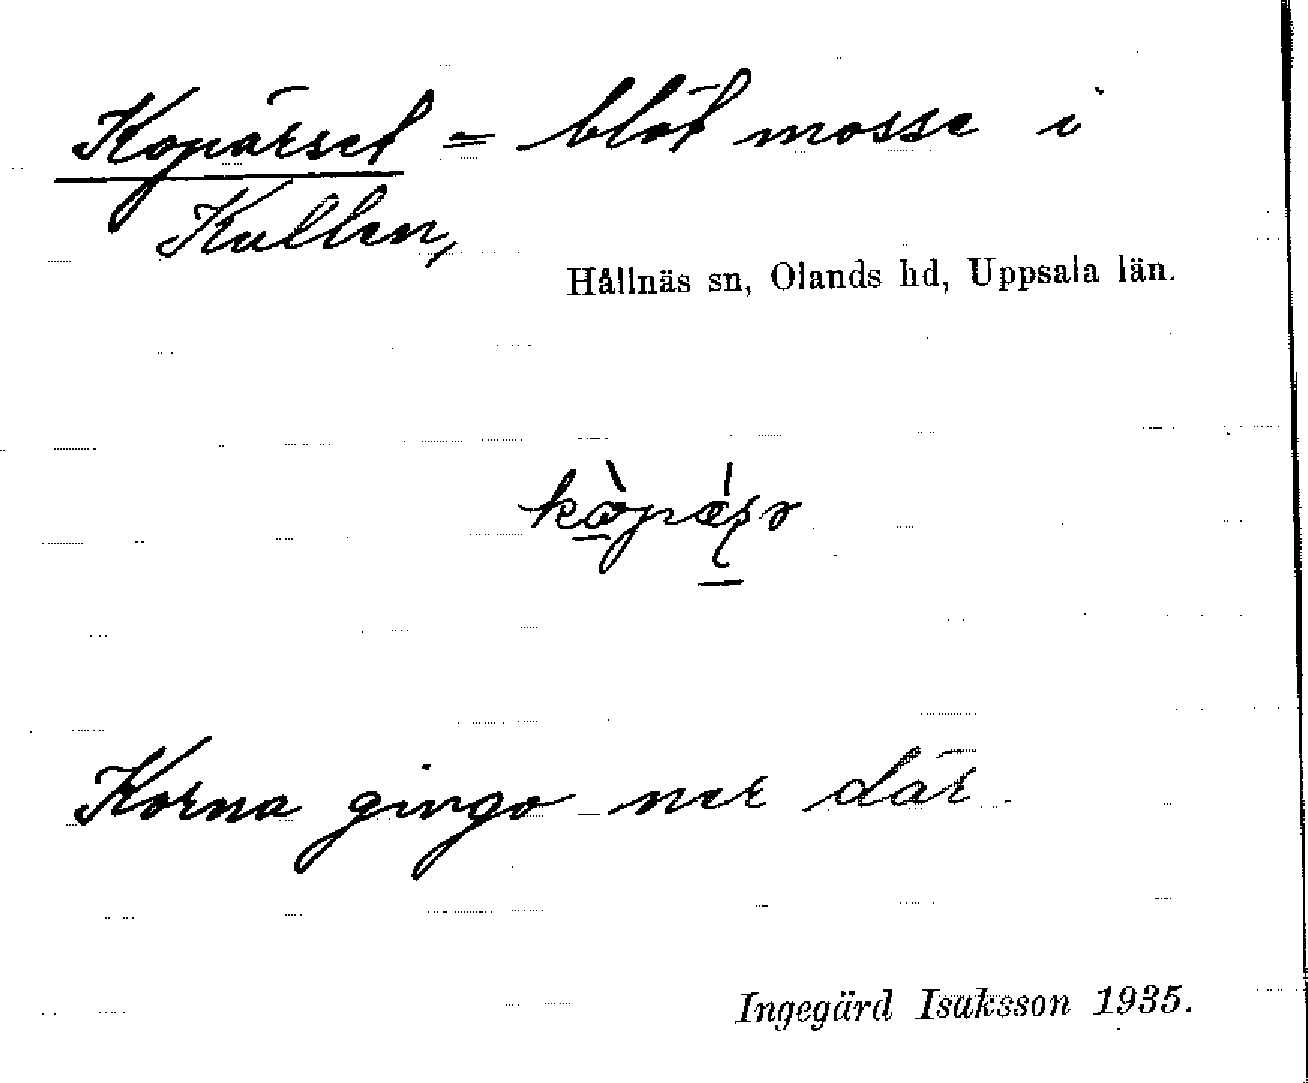 Kopärset = blöt mosse i
Kullen,
Hållnäs sn, Olands hd, Uppsala län.
Korna gingo ner där
Ingegärd Isaksson 1935.